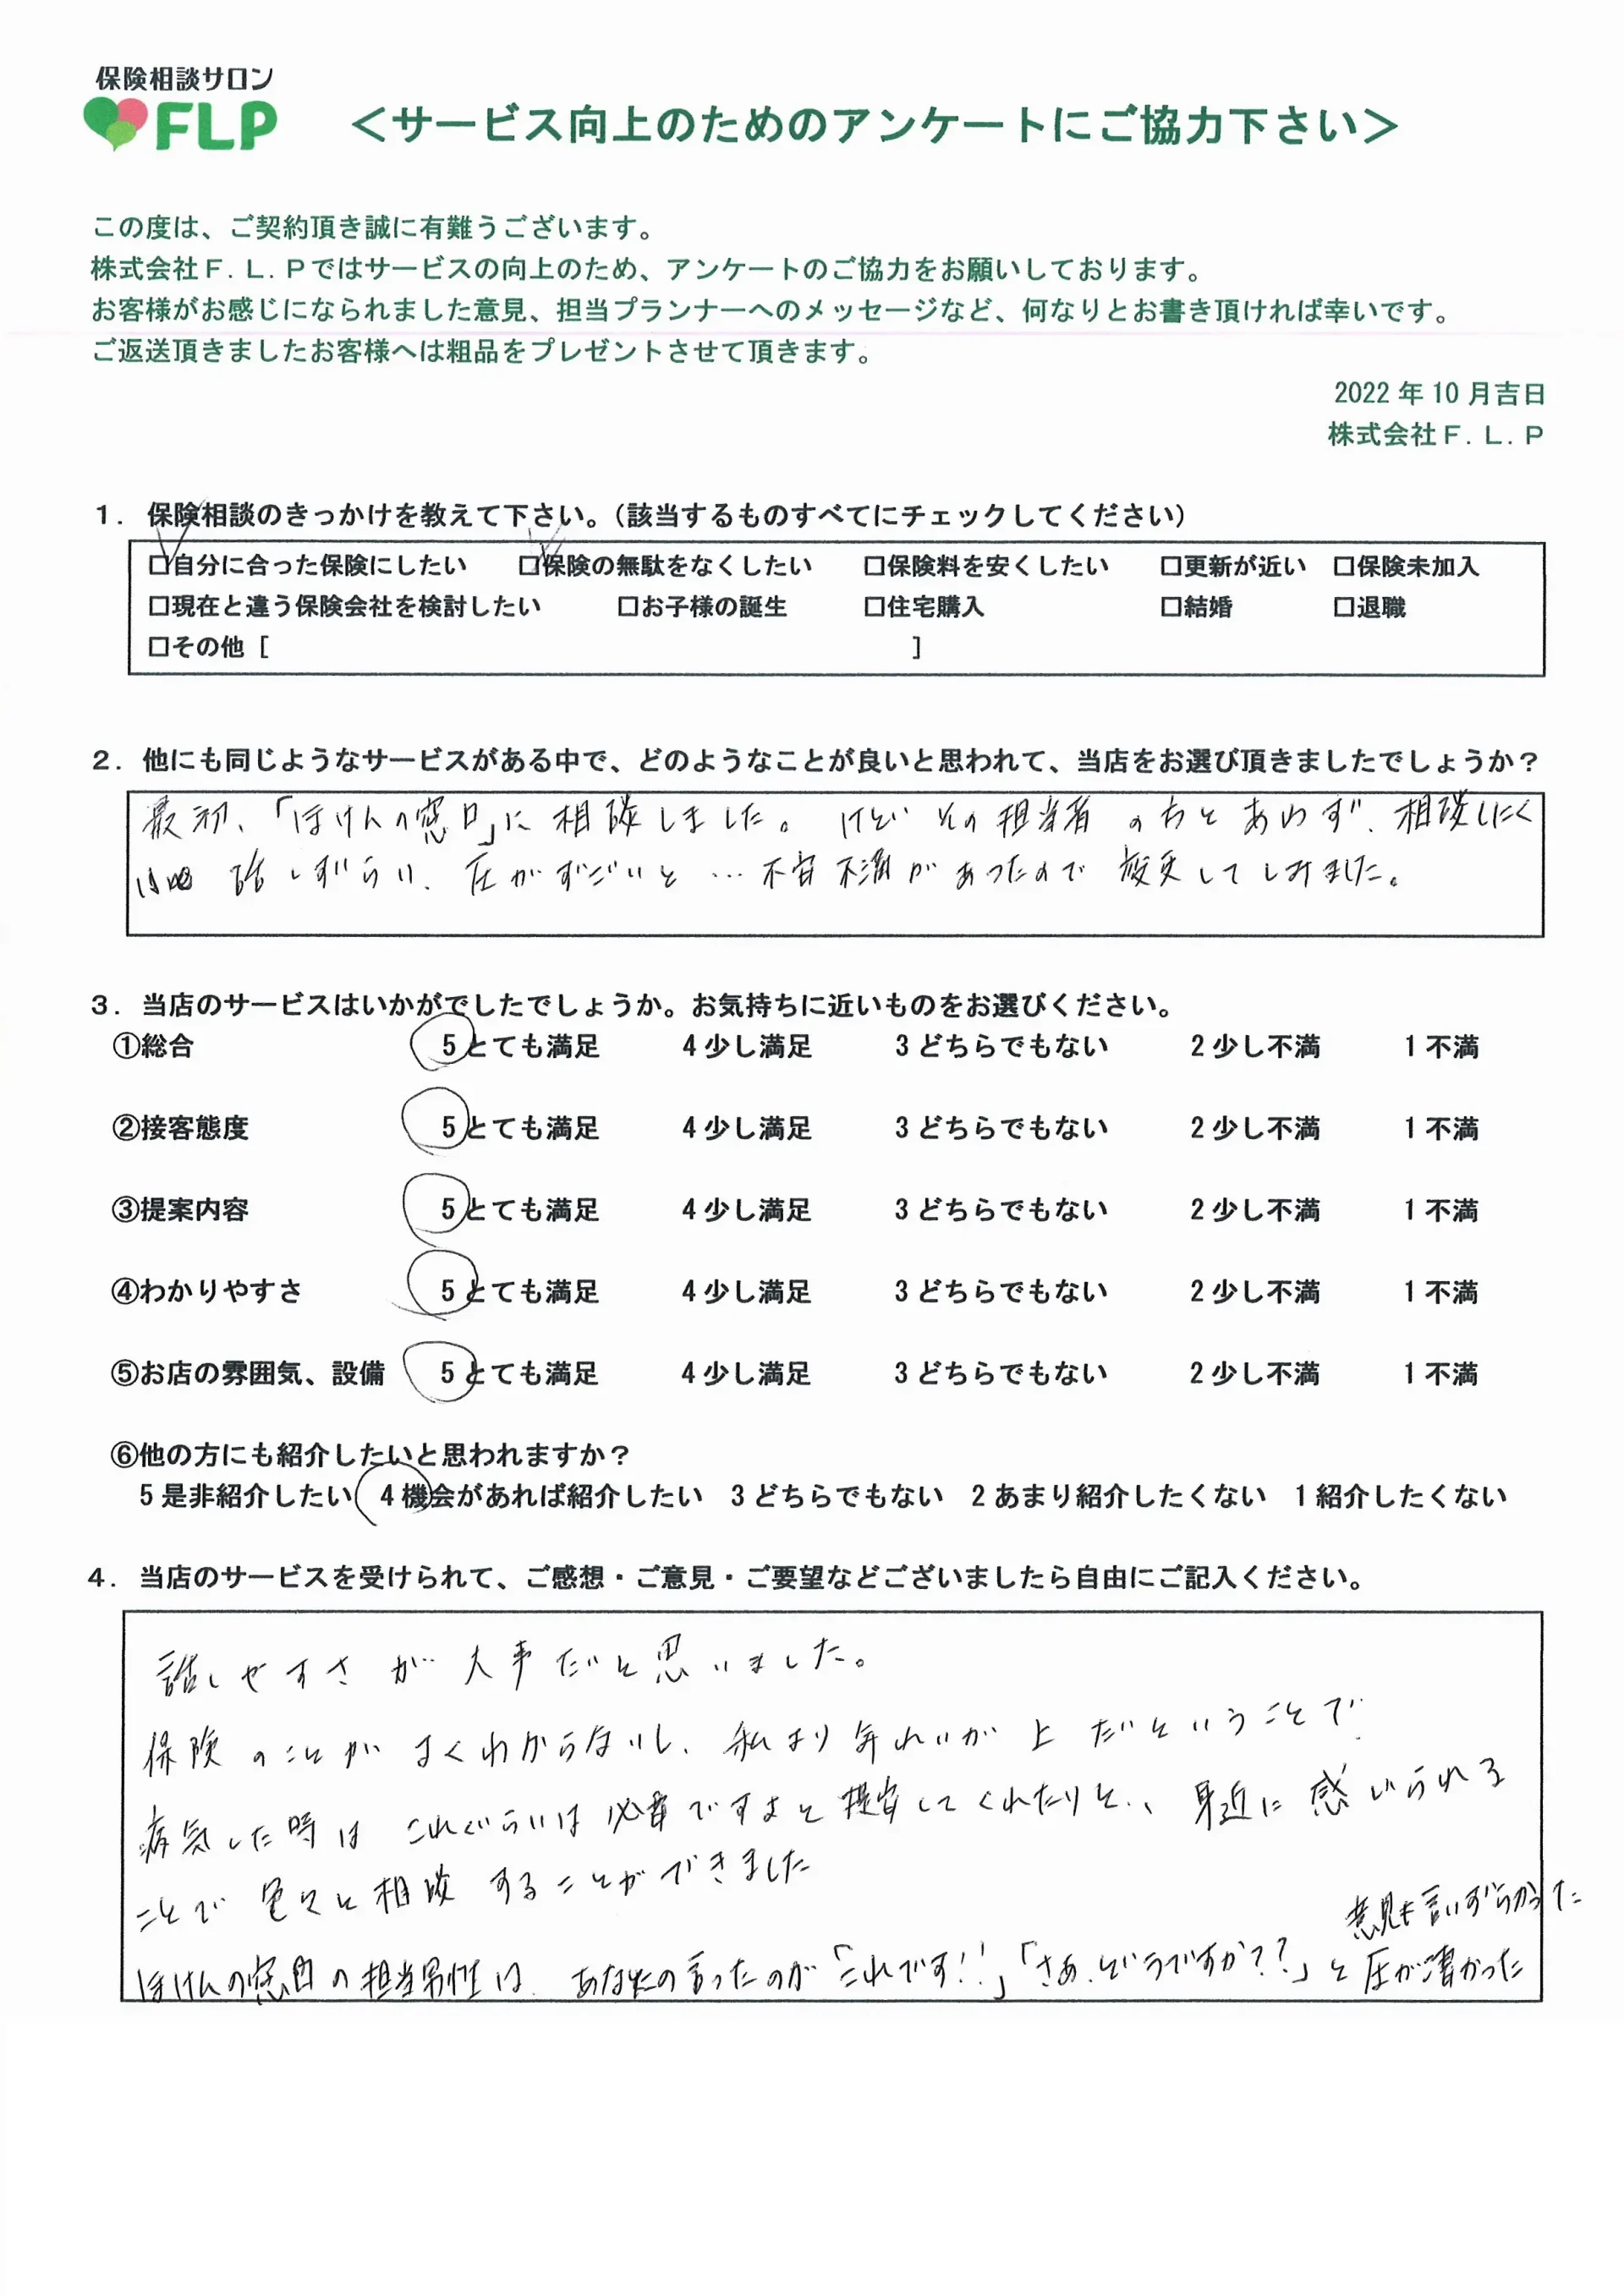 保険相談サロン
FLP
＜サービス向上のためのアンケートにご協力下さい＞
この度は、ご契約頂き誠に有難うございます。
株式会社Ｆ．Ｌ．Ｐではサービスの向上のため、アンケートのご協力をお願いしております。
お客様がお感じになられました意見、担当プランナーへのメッセージなど、何なりとお書き頂ければ幸いです。
ご返送頂きましたお客様へは粗品をプレゼントさせて頂きます。
2022 年 10 月吉日
株式会社Ｆ．Ｌ．Ｐ
１．保険相談のきっかけを教えて下さい。（該当するものすべてにチェックしてください）
☑自分に合った保険にしたい ☑保険の無駄をなくしたい □保険料を安くしたい □更新が近い □保険未加入
□現在と違う保険会社を検討したい □お子様の誕生 □住宅購入 □結婚 □退職
□その他［ ］
２．他にも同じようなサービスがある中で、どのようなことが良いと思われて、当店をお選び頂きましたでしょうか？
最初、「ほけんの窓口」に相談しました。けどその担当者の方とあわず、相談しにく
話しずらい、圧がすごいと…不安不満があったので変更してしみました。
３．当店のサービスはいかがでしたでしょうか。お気持ちに近いものをお選びください。
①総合 5 とても満足 4 少し満足 3 どちらでもない 2 少し不満 1 不満
②接客態度 5 とても満足 4 少し満足 3 どちらでもない 2 少し不満 1 不満
③提案内容 5 とても満足 4 少し満足 3 どちらでもない 2 少し不満 1 不満
④わかりやすさ 5 とても満足 4 少し満足 3 どちらでもない 2 少し不満 1 不満
⑤お店の雰囲気、設備 5 とても満足 4 少し満足 3 どちらでもない 2 少し不満 1 不満
⑥他の方にも紹介したいと思われますか？
5 是非紹介したい 4 機会があれば紹介したい 3 どちらでもない 2 あまり紹介したくない 1 紹介したくない
４．当店のサービスを受けられて、ご感想・ご意見・ご要望などございましたら自由にご記入ください。
話しやすさが大事だと思いました。
保険のことがよくわからないし、私より年れいが上だということで、
病気した時はこれぐらいは必要ですよと提案してくれたりと、身近に感じられる
ことで色々と相談することができました
意見も言いずらかった
ほけんの窓口の担当男性は、あなたの言ったのが「これです！！」「さあ、どうですか？？」と圧が凄かった